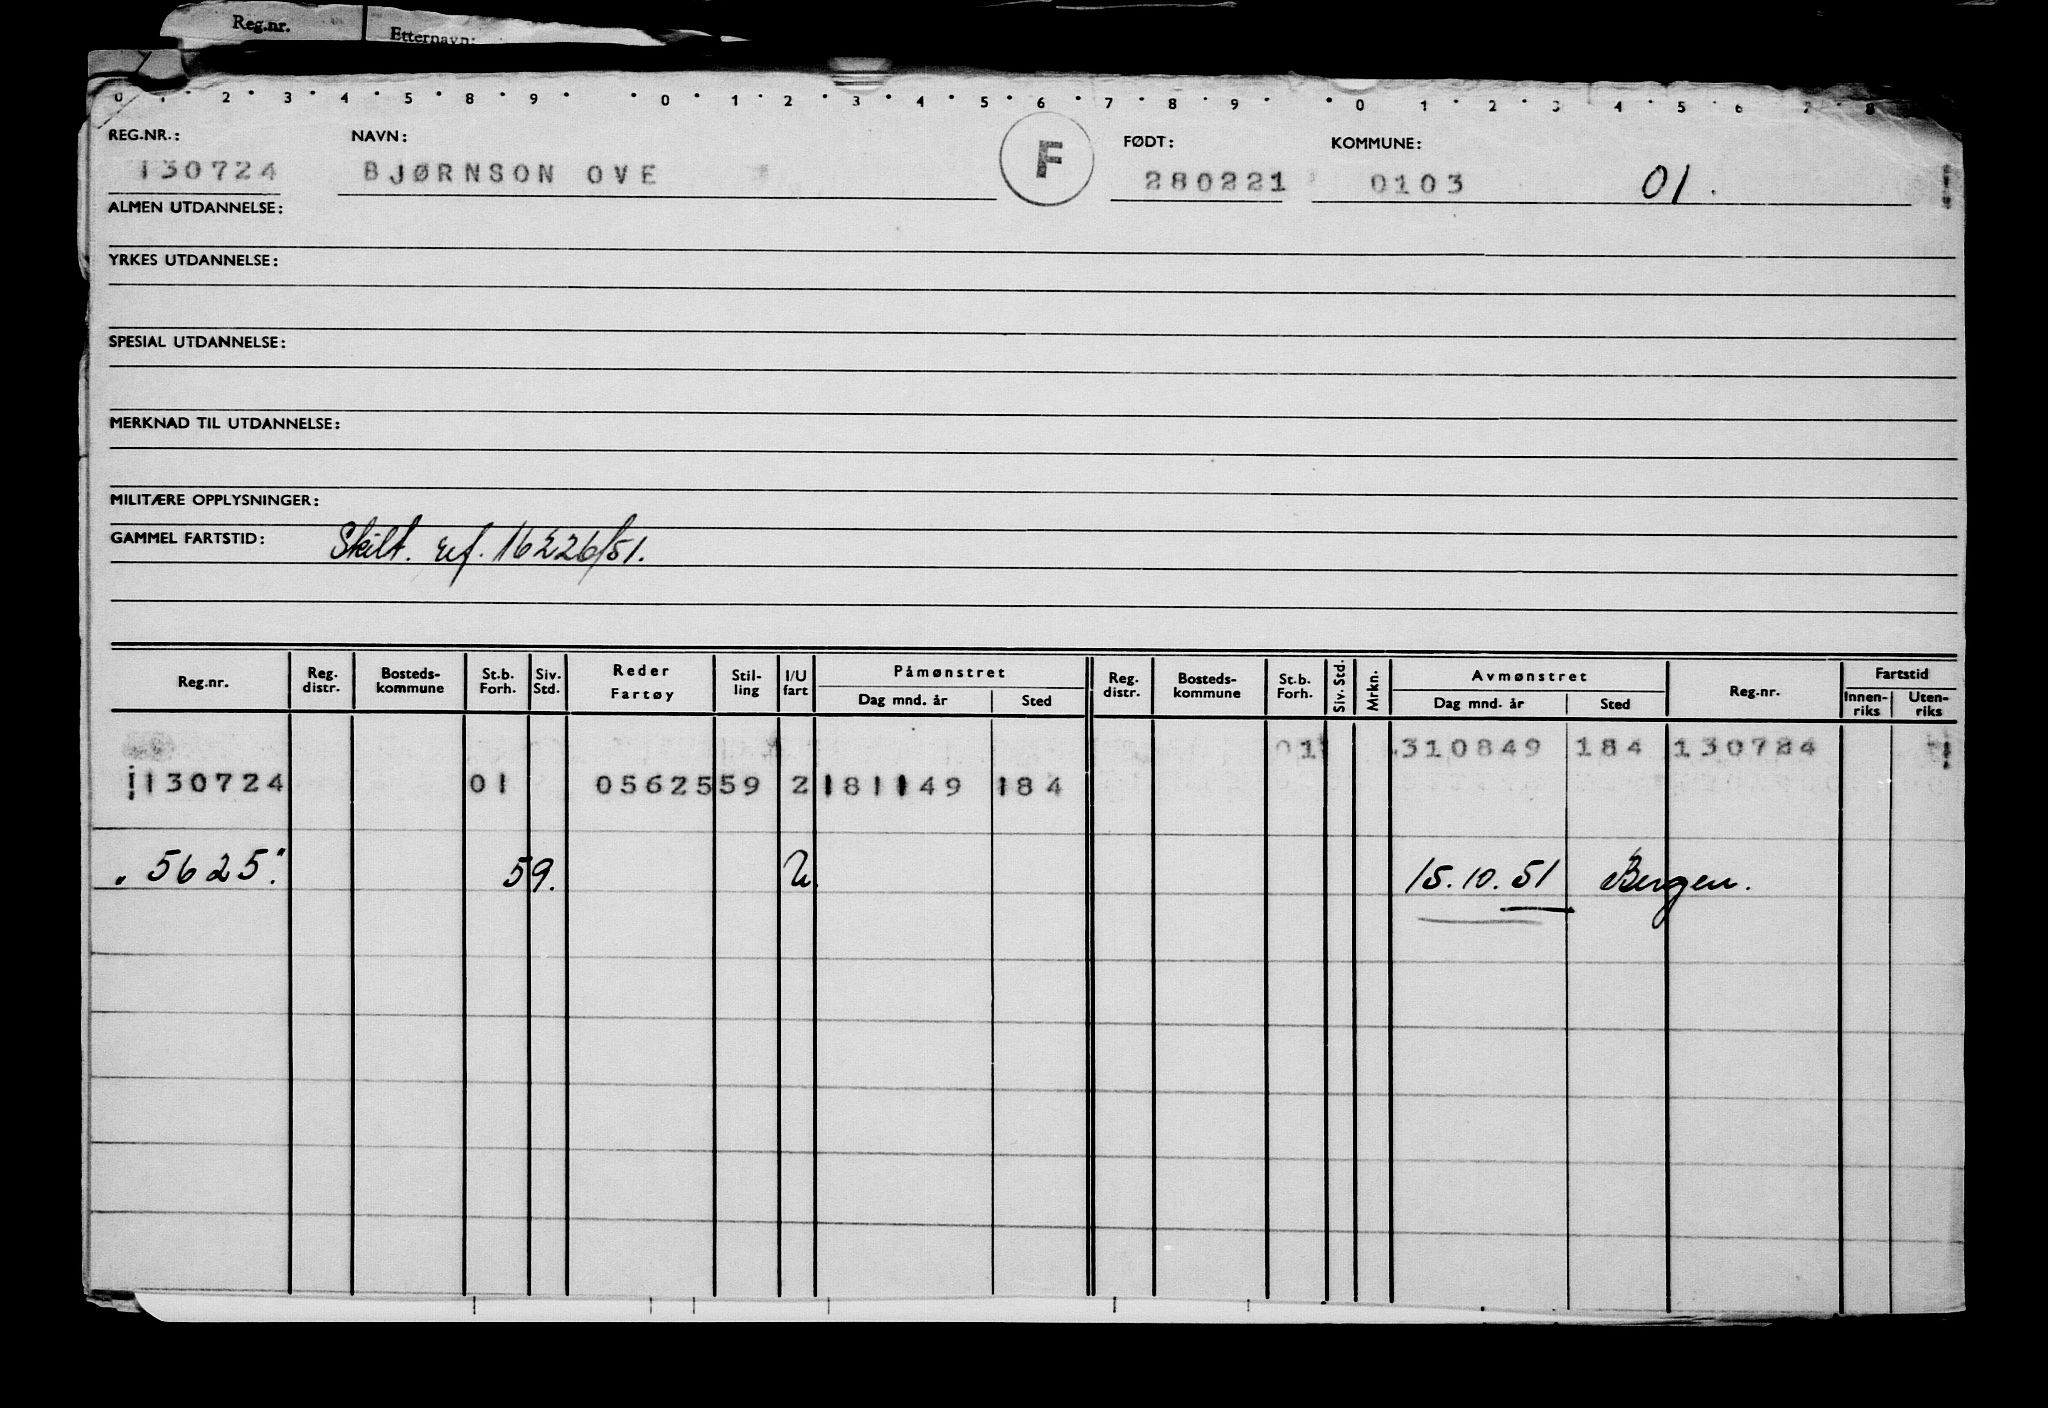 Reg.nr. Etternavn:
0 1 2 3 4 5 8 9 0 1 2 3 4 5 6 7 8 9 0 1 2 3 4 5 6 7 8
REG.NR.: NAVN: F FØDT: KOMMUNE:
130724 BJØRNSON OVE 280221 0103 01.
ALMEN UTDANNELSE:
YRKES UTDANNELSE:
SPESIAL UTDANNELSE:
MERKNAD TIL UTDANNELSE:
MILITÆRE OPPLYSNINGER:
GAMMEL FARTSTID: Skilt. ref. 16226/51.
Reg.nr. Reg. distr. Bosteds- kommune St.b. Forh. Siv. Std. Reder Fartøy Stil- ling I/U fart Påmønstret Dag mnd. år Sted Reg. distr. Bosteds- kommune St.b. Forh. Siv. Std. Mrkn. Avmønstret Dag mnd. år Sted Reg.nr. Fartstid Innen- riks Uten- riks
01 310849 184 130724
130724 01 0562559 2 181149 184
"5625". 59. U 15.10.51 Bergen.